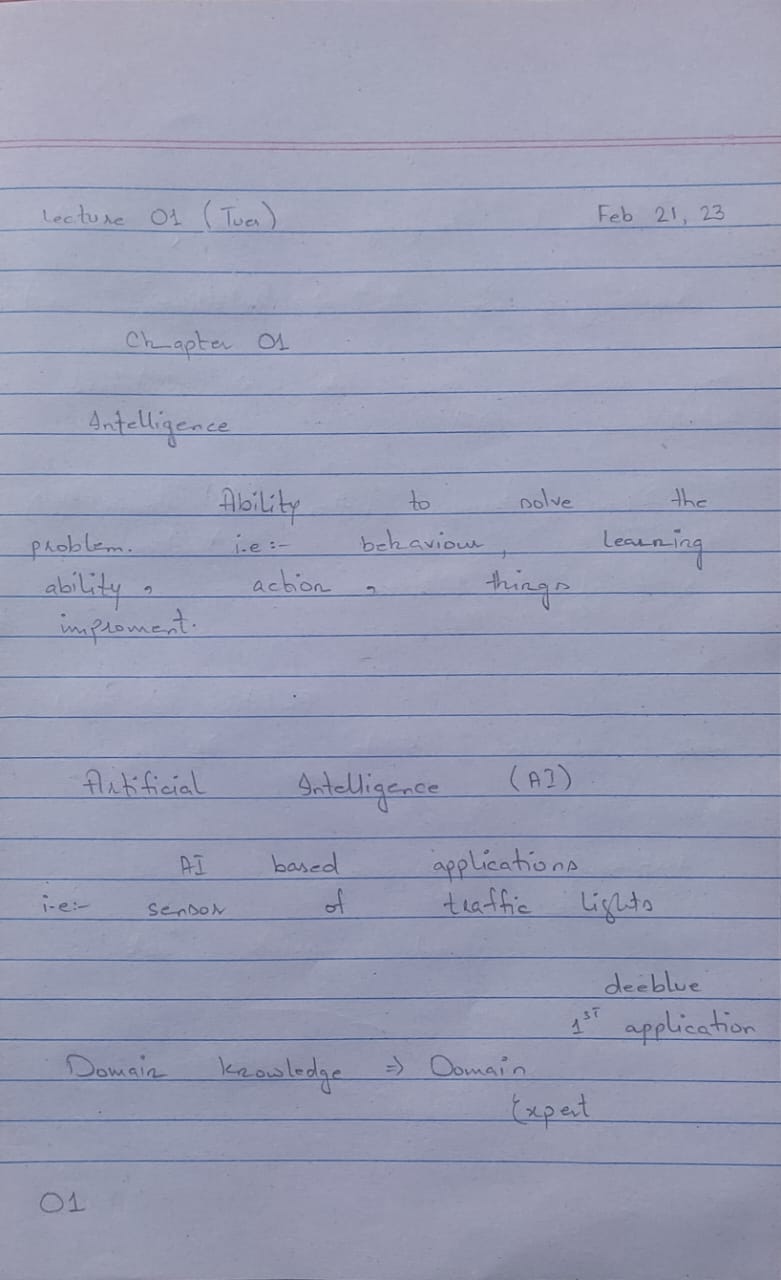 Lecture 01 (Tue) Feb 21, 23
Chapter 01
Intelligence
Ability to solve the
problem. i.e :- behaviour, learning
ability, action, things
improment.
Artificial Intelligence (AI)
AI based applications
i-e:- sensor of traffic lights
deeblue
1ST application
Domain knowledge => Domain
Expert
01